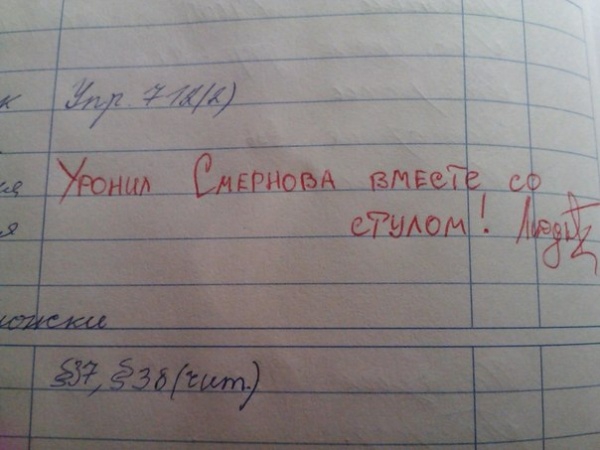 к
Упр. 712(2)
Уронил Смернова вместе со
стулом!
ия
я
ложки
§37, §38 (чит.)